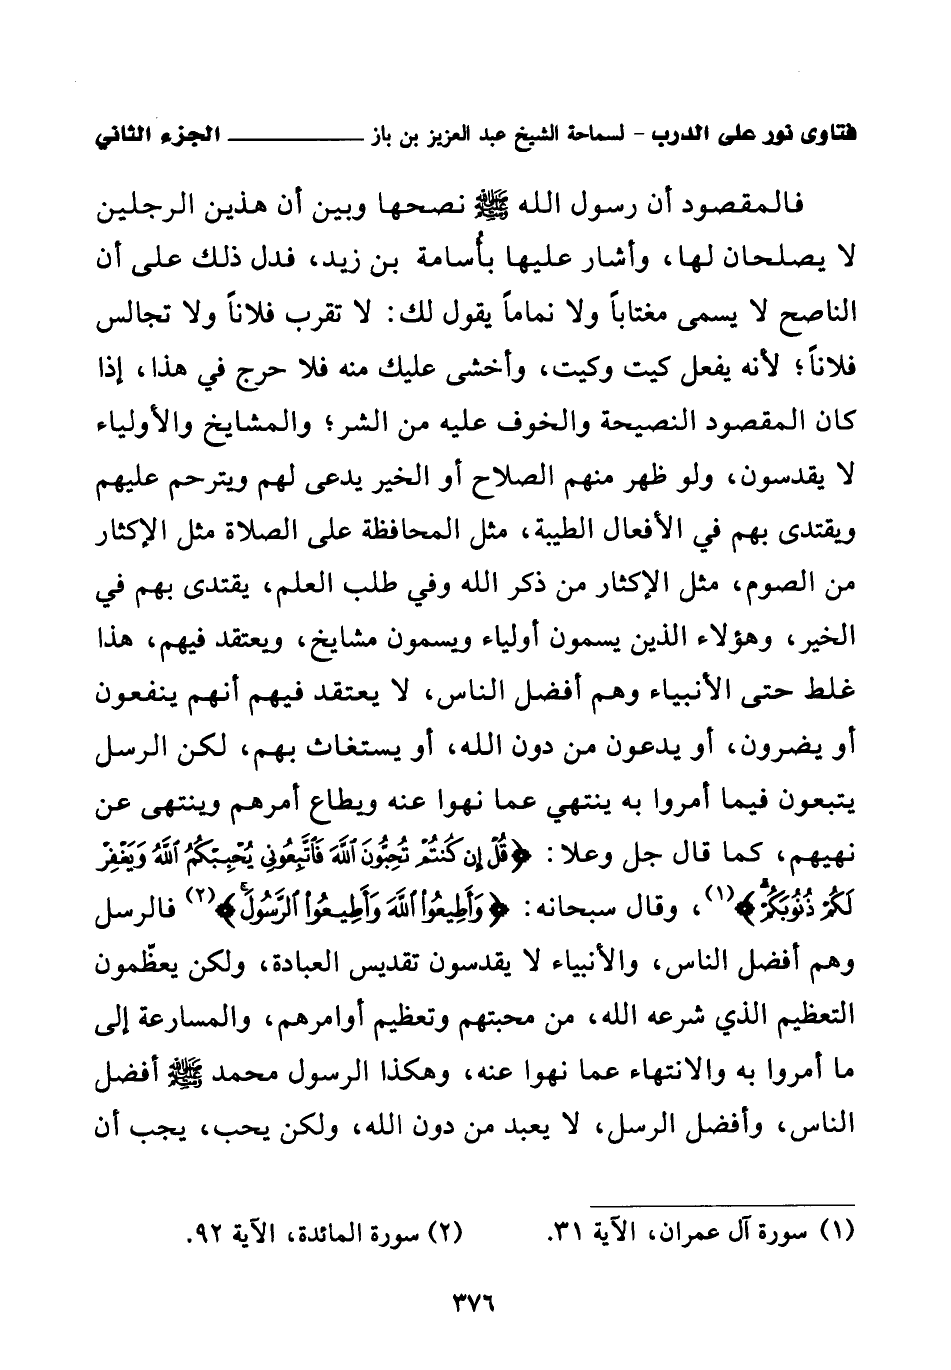 فتاوى نور على الدرب - لسماحة الشيخ عبد العزيز بن باز ـــــــــــــ الجزء الثاني
فالمقصود أن رسول الله ﷺ نصحها وبين أن هذين الرجلين
لا يصلحان لها، وأشار عليها بأُسامة بن زيد، فدل ذلك على أن
الناصح لا يسمى مغتاباً ولا نماماً يقول لك: لا تقرب فلاناً ولا تجالس
فلاناً؛ لأنه يفعل كيت وكيت، وأخشى عليك منه فلا حرج في هذا، إذا
كان المقصود النصيحة والخوف عليه من الشر؛ والمشايخ والأولياء
لا يقدسون، ولو ظهر منهم الصلاح أو الخير يدعى لهم ويترحم عليهم
ويقتدى بهم في الأفعال الطيبة، مثل المحافظة على الصلاة مثل الإكثار
من الصوم، مثل الإكثار من ذكر الله وفي طلب العلم، يقتدى بهم في
الخير، وهؤلاء الذين يسمون أولياء ويسمون مشايخ، ويعتقد فيهم، هذا
غلط حتى الأنبياء وهم أفضل الناس، لا يعتقد فيهم أنهم ينفعون
أو يضرون، أو يدعون من دون الله، أو يستغاث بهم، لكن الرسل
يتبعون فيما أمروا به ينتهي عما نهوا عنه ويطاع أمرهم وينتهى عن
نهيهم، كما قال جل وعلا: ﴿قُلْ إِن كُنتُمْ تُحِبُّونَ ٱللَّهَ فَٱتَّبِعُونِى يُحْبِبْكُمُ ٱللَّهُ وَيَغْفِرْ
لَكُمْ ذُنُوبَكُمْ﴾(١)، وقال سبحانه: ﴿وَأَطِيعُوا۟ ٱللَّهَ وَأَطِيعُوا۟ ٱلرَّسُولَ﴾(٢) فالرسل
وهم أفضل الناس، والأنبياء لا يقدسون تقديس العبادة، ولكن يعظّمون
التعظيم الذي شرعه الله، من محبتهم وتعظيم أوامرهم، والمسارعة إلى
ما أمروا به والانتهاء عما نهوا عنه، وهكذا الرسول محمد ﷺ أفضل
الناس، وأفضل الرسل، لا يعبد من دون الله، ولكن يحب، يجب أن
(١) سورة آل عمران، الآية ٣١. (٢) سورة المائدة، الآية ٩٢.
٣٧٦